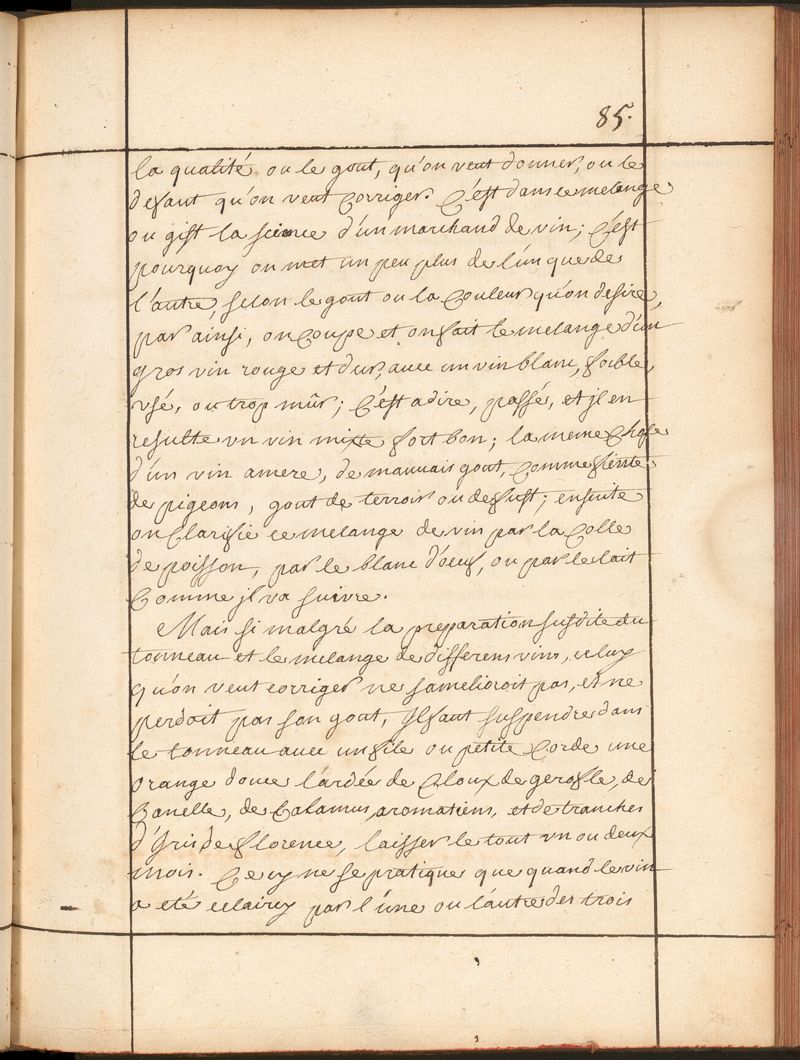 85.
la qualité ou le gout, qu'on veut donner, ou le
defaut qu'on veut Corriger. C'est dans ce melange
ou gist la science d'un marchand de vin; C'est
pourquoy on met un peu plus de l'un que de
l'autre, selon le gout ou la Couleur qu'on desire,
par ainsi, on Coupe et on fait le melange d'un
gros vin rouge et dur, avec un vin blanc, foible,
usé, ou trop mûr; C'est a dire, passé, et jl en
resulte vn vin mixte fort bon; la meme Chose
d'un vin amere, de mauvais gout, Comme fiente
de pigeons, gout de terroir ou de fust; ensuite
on Clarifie ce melange de vin par la Colle
de poisson, par le blanc d'oeuf, ou par le lait
Comme jl va suivre.
Mais si malgré la preparation susdite du
tonneau et le melange de differens vins, celuy
qu'on veut corriger ne s'amelioroit pas, et ne
perdoit pas son gout, Jl faut suspendre dans
le tonneau avec un file ou petite Corde une
orange douce lardée de Cloux de gerofle, de
Canelle, de Calamus aromaticus, et de tranches
d'Iris de florence, laisser le tout vn ou deux
mois. Cecy ne se pratique que quand le vin
a eté eclaircy par l'une ou l'autre des trois